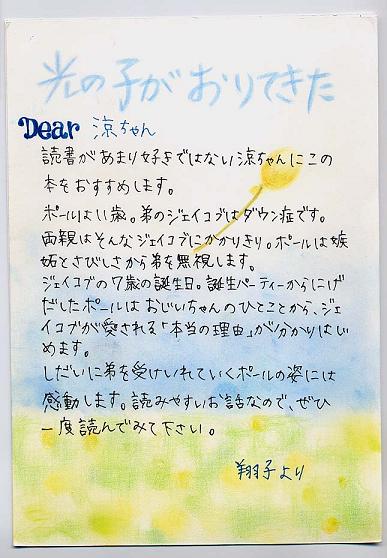 光の子がおりてきた
Dear 涼ちゃん
読書があまり好きではない涼ちゃんにこの
本をおすすめします。
ポールは11歳。弟のジェイコブはダウン症です。
両親はそんなジェイコブにかかりきり。ポールは嫉
妬とさびしさから弟を無視します。
ジェイコブの7歳の誕生日。誕生パーティーからにげ
だしたポールはおじいちゃんのひとことから、ジェ
イコブが愛される「本当の理由」が分かりはじ
めます。
しだいに弟を受けいれていくポールの姿には
感動します。読みやすいお話なので、ぜひ
一度読んでみて下さい。
翔子より